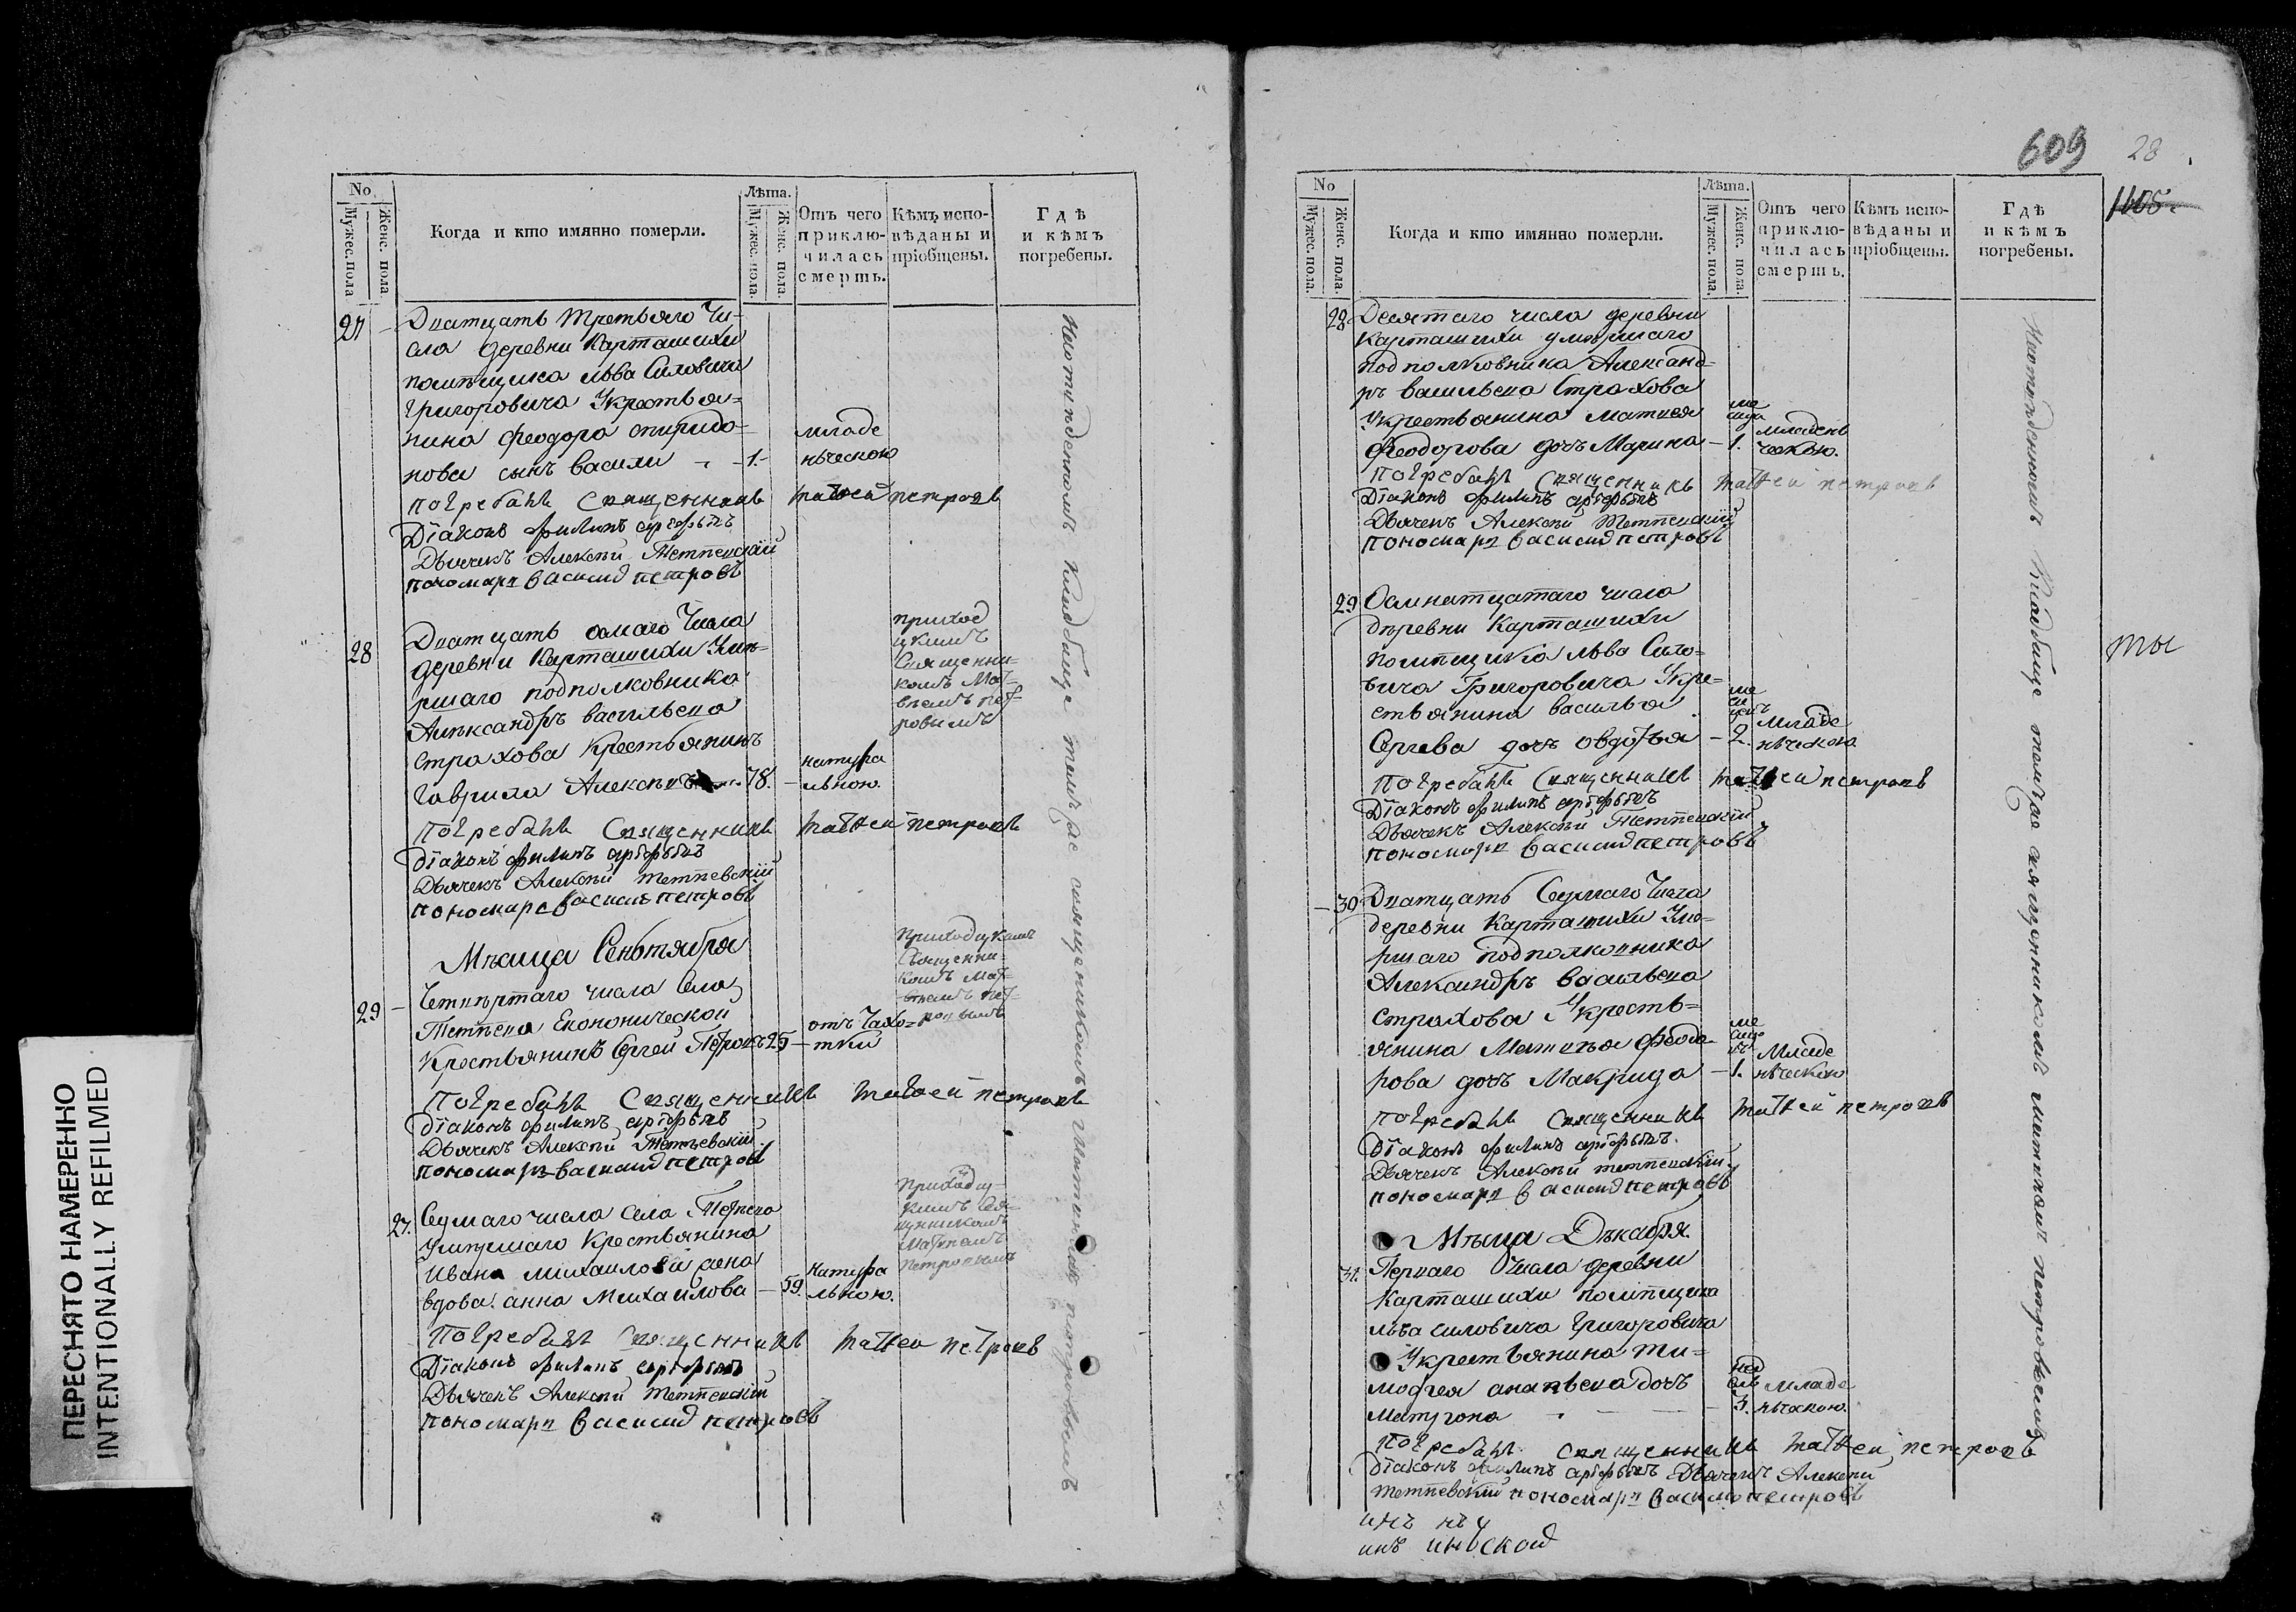 ПЕРЕСНЯТО НАМЕРЕННО
INTENTIONALLY REFILMED
No
Мужес. пола
Женс. пола
Когда и кто имянно померли.
Лѣта.
Мужес. пола.
Женс. пола.
Отъ чего приклю-чилась смерть.
Кѣмъ испо-вѣданы и пріобщены.
Гдѣ и кѣмъ погребены.
27
Дватцать третьяго Чи-
сла деревни Карташихи
помѣщика льва Силовича
Григоровича Укрестья=
нина Феодора спиридо-
нова сынъ васили - 1.
младе
нческою
погребалъ Священникъ матвей петровъ
Діаконъ филипъ
Дьячекъ Алексѣй Тетѣевскій
пономарь василий петровъ
28
Дватцать осмаго Числа
деревни Карташихи Уме=
ршаго подполковника
Александръ васильева
страхова крестьянинъ
Гаврила Алексѣевъ 78.
натура
льною.
приход
цкимъ
Священни-
комъ Мат-
веемъ пет-
ровымъ
погребалъ Священникъ матвеи петровъ
діаконъ филипъ
Дьячекъ Алексѣй тетѣевскій
пономарь василий петровъ
Мѣсяца Сеньтября
29
Четвертаго числа Села
Тетѣева Економической
Крестьянинъ Сергей Петровъ 25
отъ Чахо=
тки
приходцкимъ
Священни-
комъ Мат-
веемъ пет-
ровымъ
погребалъ Священникъ матвей петровъ
діаконъ филипъ
Дьячекъ Алексѣй Тетѣевскій.
пономарь василий петровъ
27.
Седмаго числа села Тетѣева
умершаго Крестьянина
Ивана михаилова жена
вдова анна Михаилова 59.
натура
льною.
Приходц-
кимъ Свя-
щникомъ
Матвеемъ
Петровымъ
погребалъ Священникъ матвеи петровъ
Діаконъ филипъ
Дьячекъ Алексѣй тетѣевскій
пономарь василий петровъ
кладбище темъже священникомъ петровымъ
609
28
1105.
No
Мужес. пола.
Женс. пола.
Когда и кто имянно померли.
Лѣта.
Мужес. пола.
Женс. пола.
Отъ чего приклю-чилась смерть.
Кѣмъ испо-вѣданы и пріобщены.
Гдѣ и кѣмъ погребены.
28
Десятаго числа деревни
Карташихи умершаго
подполковника Александ-
ръ васильева Страхова
Укрестьянина матвея
Феодорова дочь Марина - 1.
младень
ческою.
погребалъ Священникъ матвеи петровъ
Діаконъ филипъ
Дьячекъ Алексѣй Тетѣевскій
пономарь василий петровъ
29
Осмнатцатаго числа
деревни Карташихи
помѣщика льва Сило-
вича Григоровича Укре-
стьянина василья
Сергева дочь овдотья - 2.
младе
нческою
погребалъ Священникъ матвеи петровъ
Діаконъ филипъ
Дьячекъ Алексѣй Тетѣевскій
пономарь василий петровъ
30
Дватцать Седмаго Числа
деревни Карташихи Уме-
ршаго подполковника
Александръ васильева
страхова Укресть=
янина Матвея Феодо-
рова дочь Макрида - 1.
Младе
нческою
погребалъ Священникъ матвеи петровъ
Діаконъ филипъ
Дьячекъ Алексѣй тетѣевскій
пономарь василий петровъ
Мѣсяца Декабря.
31.
Перваго Числа деревни
Карташихи помѣщика
льва силовича Григоровича
Укрестьянина ти-
мофея ананьева дочь
Матрона 3.
нед
ель
младе
нческою.
погребалъ Священникъ матвеи петровъ
діаконъ филипъ Дьячекъ Алексѣй
тетѣевскій пономарь василий петровъ
кладбище темъже священникомъ матвеемъ петровымъ
ты